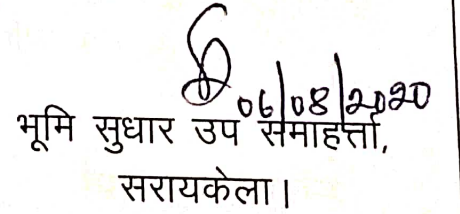 06/08/2020
भूमि सुधार उप समाहर्त्ता,
सरायकेला।